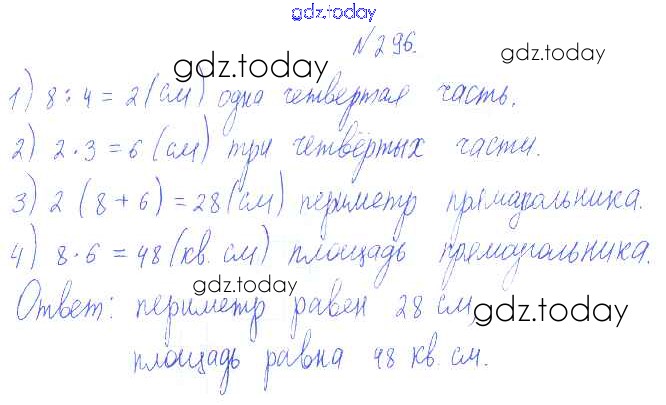 gdz.today
№ 296.
gdz.today gdz.today
1) 8 : 4 = 2 (см) одна четвертая часть.
2) 2 · 3 = 6 (см) три четвёртых части.
gdz.today gdz.today
3) 2 (8 + 6) = 28 (см) периметр прямоугольника.
4) 8 · 6 = 48 (кв. см) площадь прямоугольника.
gdz.today
Ответ: периметр равен 28 см,
gdz.today
площадь равна 48 кв. см.